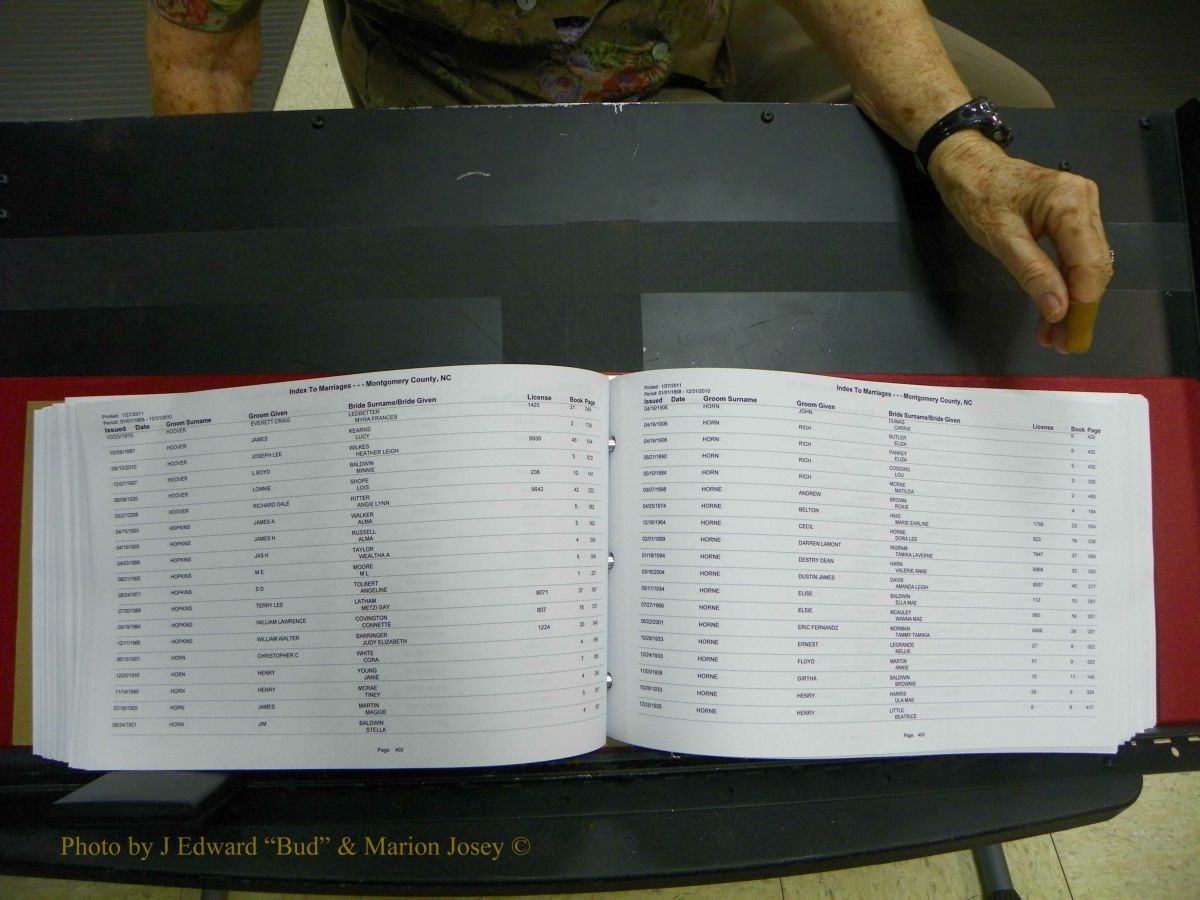 Index To Marriages - - - Montgomery County, NC
Printed 1/27/2011
Period: 01/01/1868 - 12/31/2010
Issued Date Groom Surname Groom Given Bride Surname/Bride Given License Book Page
10/23/1970 HOOVER EVERETT CRAIG LEDBETTER 1425 21
MYRA FRANCES
10/06/1887 HOOVER JAMES KEARNS 2
LUCY
09/10/2010 HOOVER JOSEPH LEE WILKES 9938 43
HEATHER LEIGH
12/07/1907 HOOVER L BOYD BALDWIN 5 572
MINNIE
06/08/1935 HOOVER LONNIE SHOPE 208 10 141
LOIS
05/27/2008 HOOVER RICHARD DALE RITTER 9642 42 222
ANGIE LYNN
04/15/1903 HOPKINS JAMES A WALKER 5
ALMA
04/15/1903 HOPKINS JAMES H RUSSELL 5
ALMA
04/03/1899 HOPKINS JAS H TAYLOR 4
WEALTHA A
08/21/1905 HOPKINS M E MOORE 5
M L
08/24/1871 HOPKINS S D TOLBERT 1
ANGELINE
07/30/1999 HOPKINS TERRY LEE LATHAM 8071 37
METZI GAY
09/19/1964 HOPKINS WILLIAM LAWRENCE COVINGTON 807 18
CONNETTE
12/11/1968 HOPKINS WILLIAM WALTER BARRINGER 1224 20
JUDY ELIZABETH
HORN CHRISTOPHER C WHITE 4
CORA
HORN HENRY YOUNG 7
JANIE
HORN HENRY MCRAE 4
TINEY
HORN JAMES MARTIN 5
MAGGIE
08/24/1901 HORN JIM BALDWIN 4
STELLA
Page: 402
Index To Marriages - - - Montgomery County, NC
Printed 1/27/2011
Period: 01/01/1868 - 12/31/2010
Issued Date Groom Surname Groom Given Bride Surname/Bride Given License Book Page
04/16/1906 HORN JOHN DUMAS 5 429
CARRIE
04/16/1906 HORN RICH BUTLER 5 430
ELIZA
04/16/1906 HORN RICH PANKEY 5 430
ELIZA
08/21/1890 HORN RICH COGGINS 3 225
LOU
09/10/1884 HORN RICH MCRAE 2 469
MATILDA
09/07/1898 HORNE ANDREW BROWN 4 164
ROXIE
04/25/1974 HORNE BELTON HAIG 1799 23 054
MARIE EARLINE
12/16/1964 HORNE CECIL HORNE 823 18 036
DORA LEE
02/01/1999 HORNE DARREN LAMONT INGRAM 7947 37 098
TAMIKA LAVERNE
01/18/1994 HORNE DESTRY DEAN HARN 6968 33 092
VALERIE ANNE
03/16/2004 HORNE DUSTIN JAMES DAVIS 8937 40 217
AMANDA LEIGH
09/17/1934 HORNE ELISE BALDWIN 112 10 051
ELLA MAE
07/27/1966 HORNE ELSIE MCAULEY 980 19 091
WANNA MAE
06/22/2001 HORNE ERIC FERNANDZ MORMAN 8456 39 067
TAMMY TAMIKIA
10/28/1933 HORNE ERNEST LEGRANDE 27 9 322
NELLIE
12/24/1933 HORNE FLOYD MARTIN 51 9 323
ANNIE
11/05/1938 HORNE GIRTHA BALDWIN 15 11 145
BROWNIE
10/28/1933 HORNE HENRY HARRIS 29 9 324
ULA MAE
12/25/1926 HORNE HENRY LITTLE 8 8 417
BEATRICE
Page: 403
Photo by J Edward “Bud” & Marion Josey ©